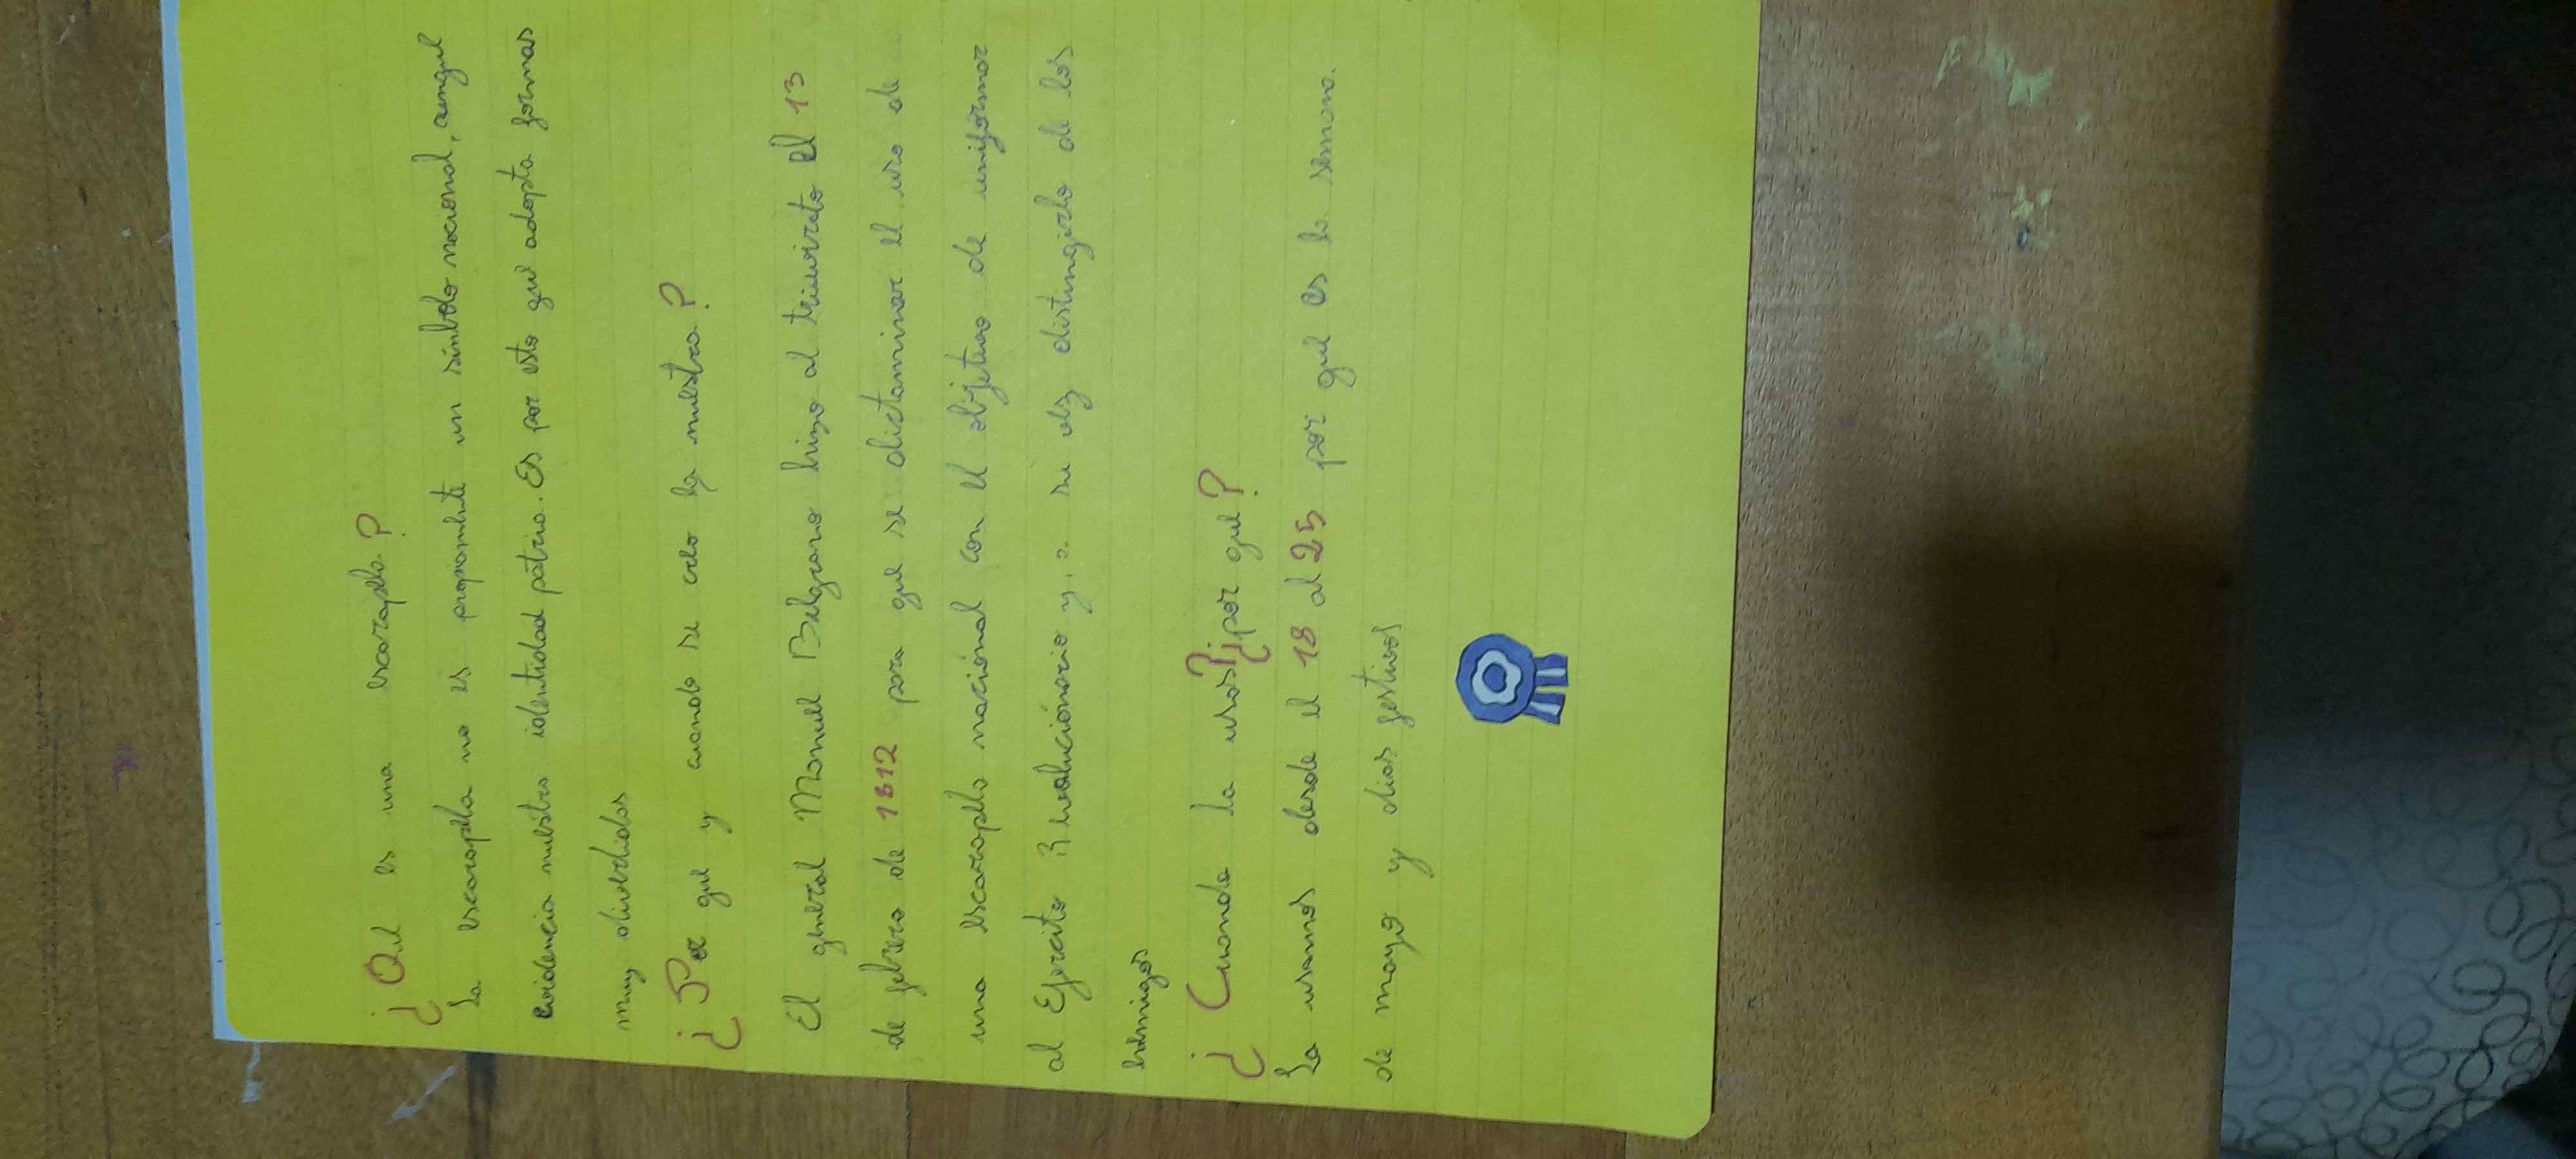 ¿Que es una escarapela?
La escarapela no es propiamente un símbolo nacional, aunque
evidencia nuestra identidad patria. Es por esto que adopta formas
muy divertidas
¿Por que y cuando se creo la nuestra?
El general Manuel Belgrano hizo al triunvirato el 13
de febrero de 1812 para que se dictaminar el uso de
una escarapela nacional con el objetivo de uniformar
al Ejercito Revolucionario y, a su vez distinguirlo de los
enemigos
¿Cuando la usas? ¿por que?
La usamos desde el 18 al 25 por que es la semana.
de mayo y dias festivos